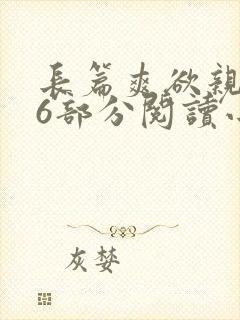 長篇爽欲親
6部分閱讀小
灰婪